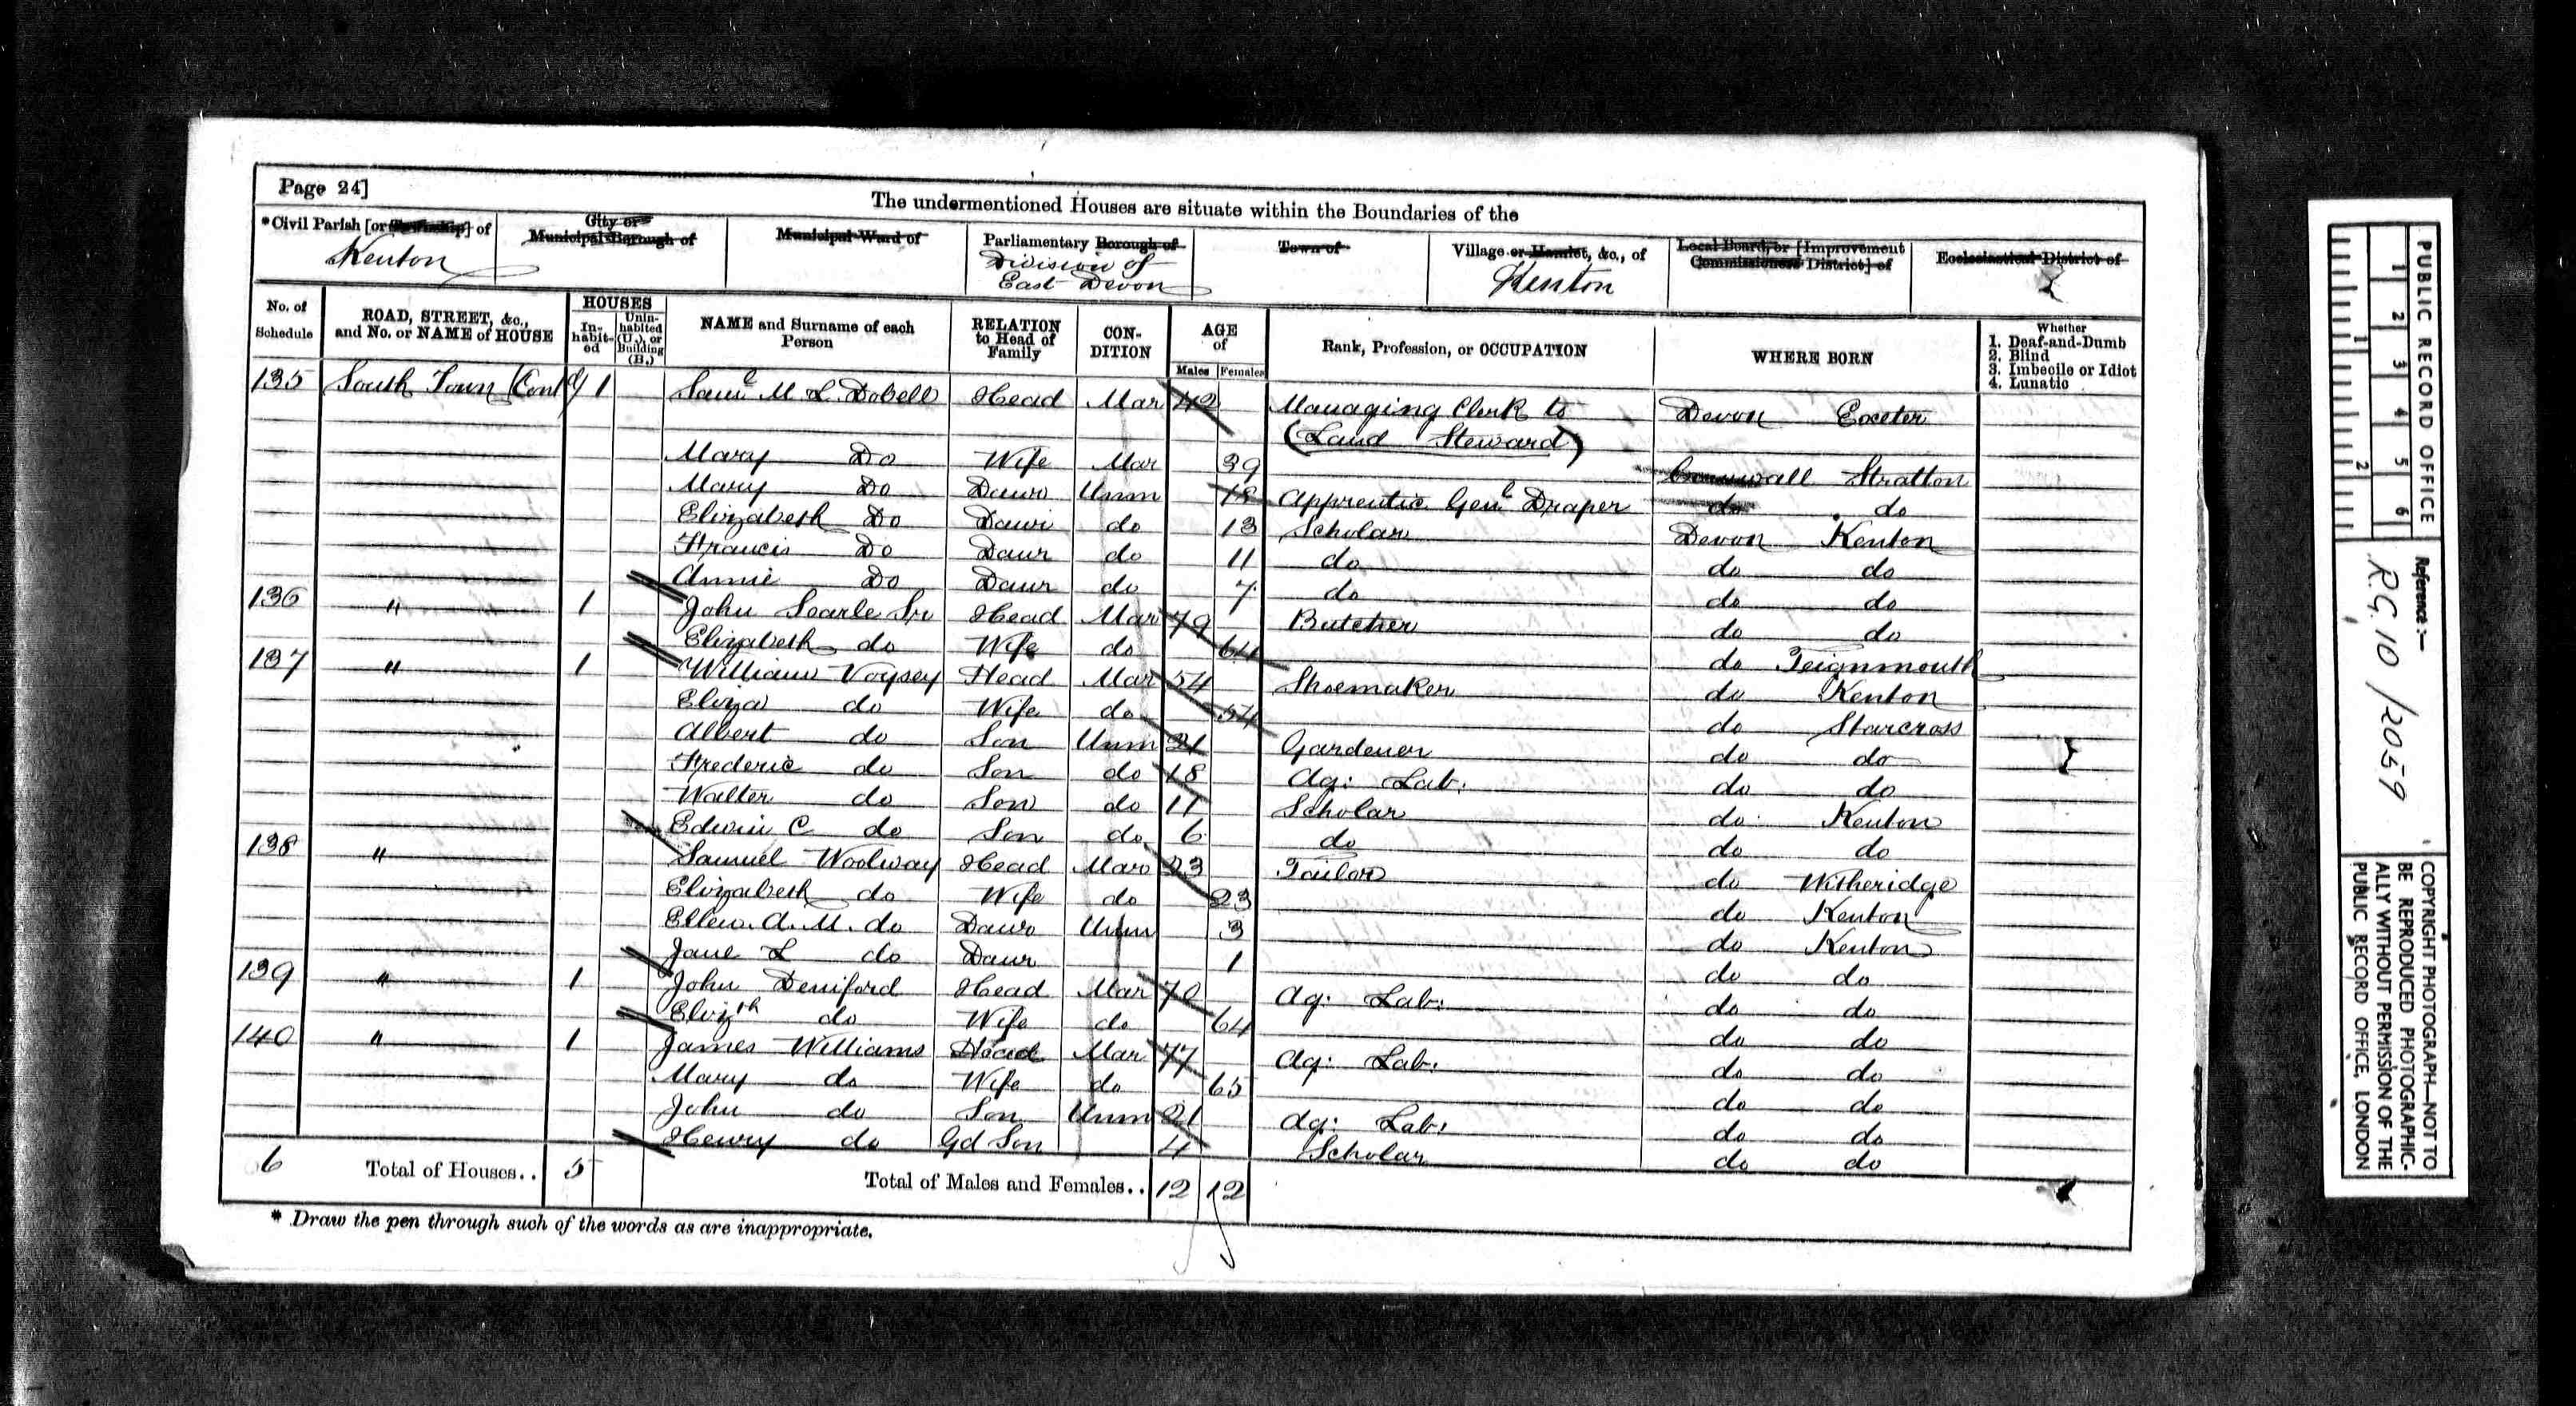 Page 24]
The undermentioned Houses are situate within the Boundaries of the
*Civil Parish [or Township] of
Kenton
City or
Municipal Borough of
Municipal Ward of
Parliamentary Borough of
Division of
East Devon
Town of
Village or Hamlet, &c., of
Kenton
Local Board, or [Improvement
Commissioners District] of
Ecclesiastical District of
No. of
Schedule
ROAD, STREET, &c.,
and No. or NAME of HOUSE
HOUSES
In-
habit-
ed
Unin-
habited
(U.), or
Building
(B.)
NAME and Surname of each
Person
RELATION
to Head of
Family
CON-
DITION
AGE
of
Males
Females
Rank, Profession, or OCCUPATION
WHERE BORN
Whether
1. Deaf-and-Dumb
2. Blind
3. Imbecile or Idiot
4. Lunatic
135 South Town (Contd) 1 Saml M. L. Dobell Head Mar 42 Managing Clerk to Devon Exeter
(Land Steward)
Mary Do Wife Mar 39 Cornwall Stratton
Mary Do Daur Unm 18 Apprentice Genl Draper do do
Elizabeth Do Daur do 13 Scholar Devon Kenton
Francis Do Daur do 11 do do do
Annie Do Daur do 7 do do do
136 " 1 John Searle Sr Head Mar 79 Butcher do do
Elizabeth do Wife do 64 do Teignmouth
137 " 1 William Voysey Head Mar 54 Shoemaker do Kenton
Eliza do Wife do 54 do Starcross
Albert do Son Unm 21 Gardener do do
Frederic do Son do 18 Ag: Lab: do do
Walter do Son do 11 Scholar do Kenton
Edwin C do Son do 6 do do do
138 " Samuel Woolway Head Mar 23 Tailor do Witheridge
Elizabeth do Wife do 23 do Kenton
Ellen. A. M. do Daur Unm 3 do Kenton
Jane L do Daur 1 do do
139 " 1 John Deniford Head Mar 70 Ag: Lab: do do
Elizth do Wife do 64 do do
140 " 1 James Williams Head Mar 77 Ag: Lab: do do
Mary do Wife do 65 do do
John do Son Unm 21 Ag: Lab: do do
Henry do Gd Son 4 Scholar do do
6 Total of Houses.. 5 Total of Males and Females.. 12 12
* Draw the pen through such of the words as are inappropriate.
PUBLIC RECORD OFFICE
1 2 3 4 5 6
1 2
Reference:—
R.G. 10 / 2059
COPYRIGHT PHOTOGRAPH—NOT TO
BE REPRODUCED PHOTOGRAPHIC-
ALLY WITHOUT PERMISSION OF THE
PUBLIC RECORD OFFICE, LONDON